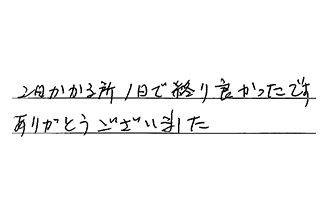 2日かかる所1日で終り良かったです
ありがとうございました